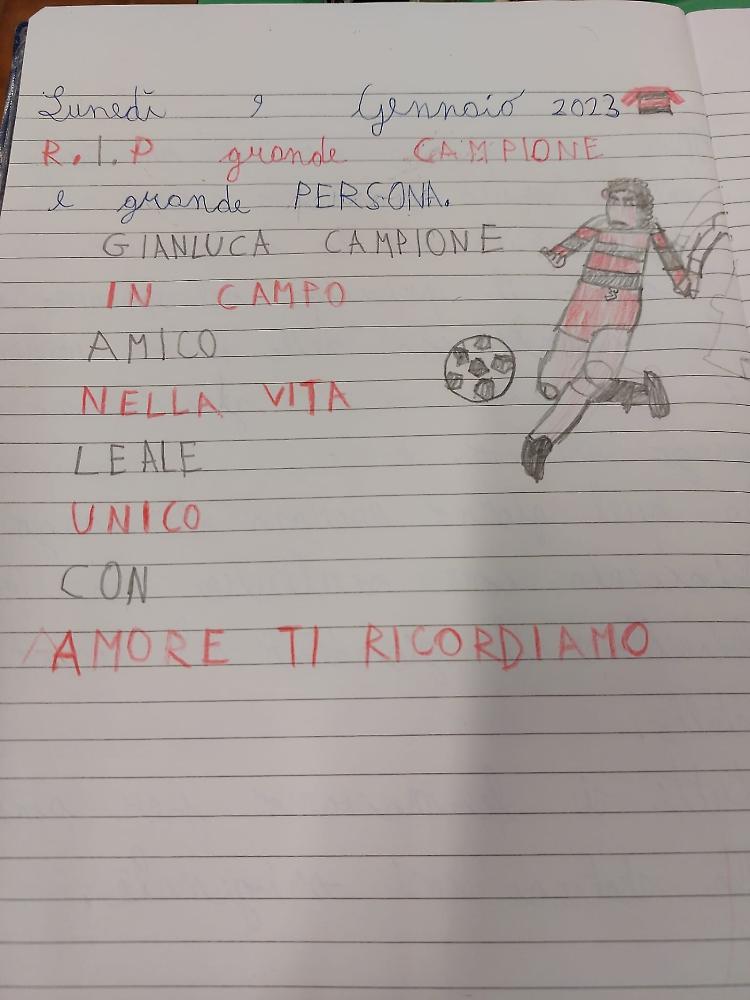 Lunedì 9 Gennaio 2023
R.I.P grande CAMPIONE
e grande PERSONA.
GIANLUCA CAMPIONE
IN CAMPO
AMICO
NELLA VITA
LEALE
UNICO
CON
AMORE TI RICORDIAMO